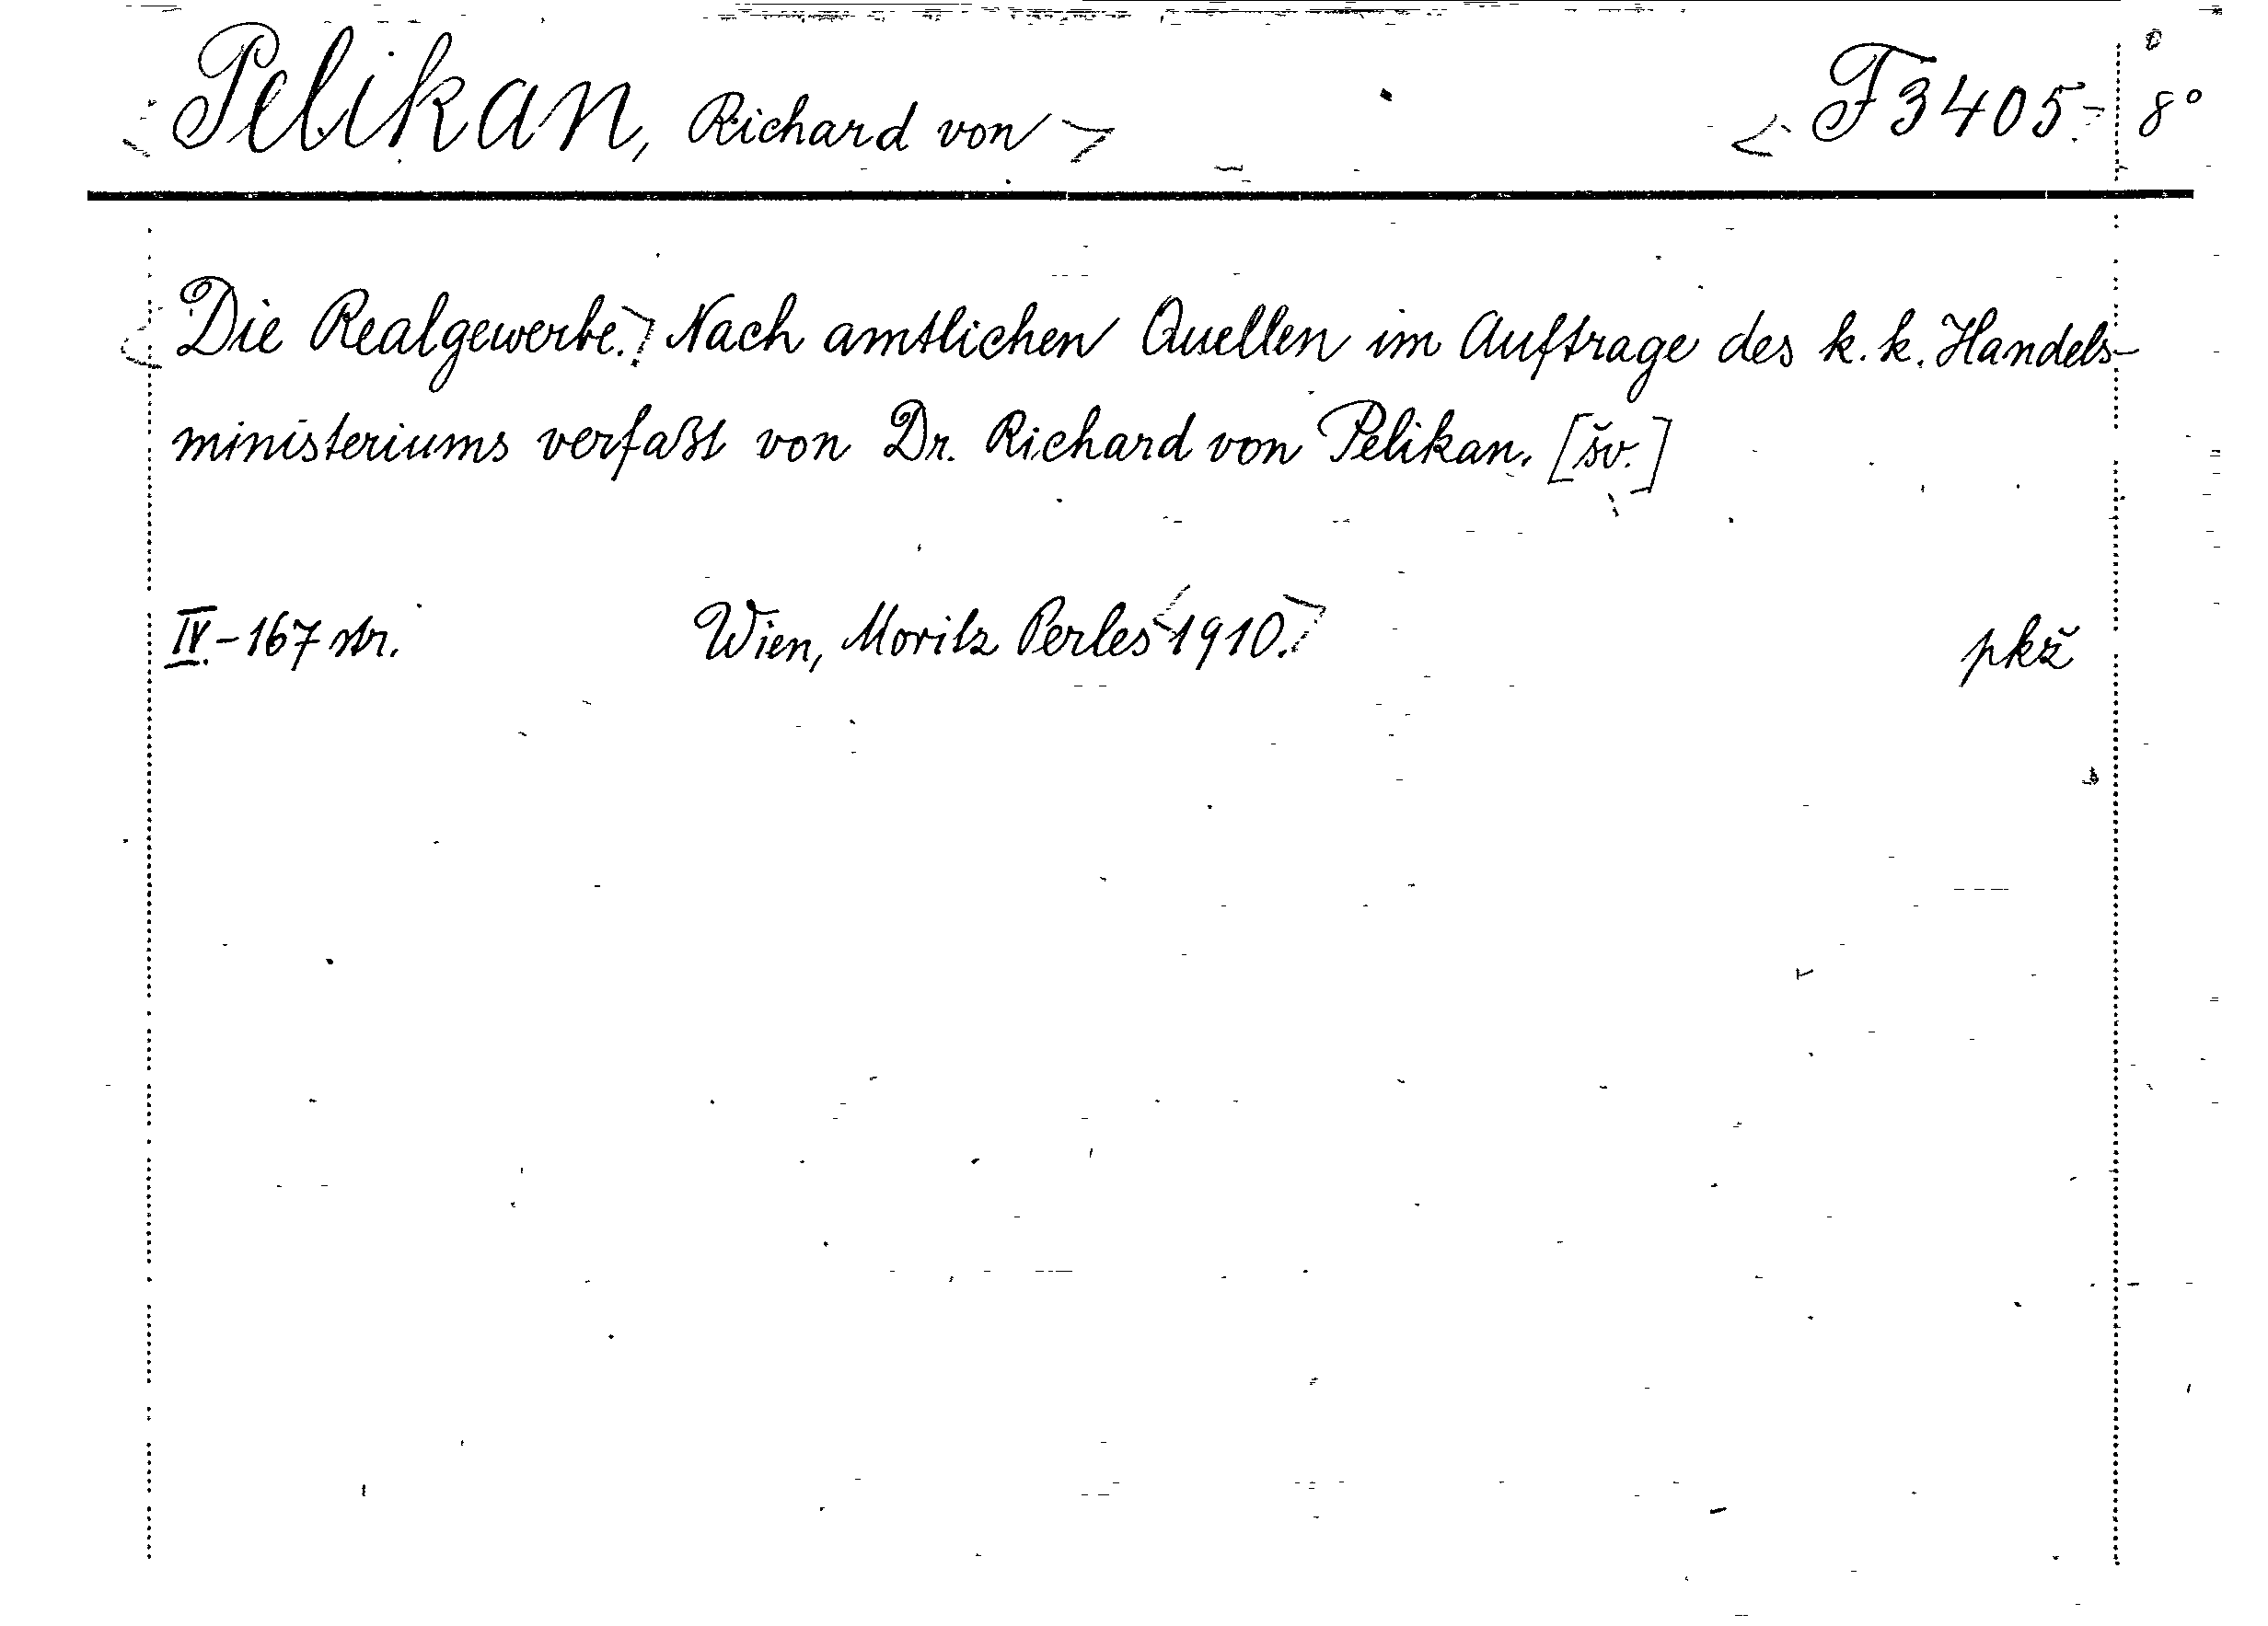 Pelikan, Richard von F 3405. 8°
Die Realgewerbe. Nach amtlichen Quellen im Auftrage des k. k. Handels-
ministeriums verfaßt von Dr. Richard von Pelikan. [šv.]
IV.-167 str. Wien, Moritz Perles 1910. pkž